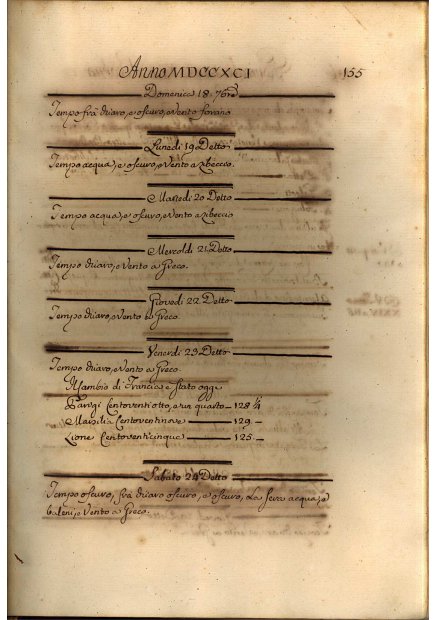 Anno MDCCXCI 155
Domenica 18. 7bre
Tempo frà chiaro, e oscuro, e Vento forano
Lunedi 19 Detto
Tempo acqua, e oscuro, e Vento a libeccio.
Martedi 20 Detto
Tempo acqua, e oscuro, e Vento a libeccio
Mercoldi 21 Detto
Tempo chiaro, e Vento a Greco.
Giovedi 22 Detto
Tempo chiaro, e Vento a Greco
Venerdi 23 Detto
Tempo chiaro, e Vento a Greco
Il Cambio di Francia e stato oggi
Parigi Centoventiotto, e un quarto 128 1/4
Marsilia Centoventinove 129
Lione Centoventicinque 125
Sabato 24 Detto
Tempo oscuro, frà chiaro oscuro, e oscuro, La sera acqua, e
baleni, e Vento a Greco.